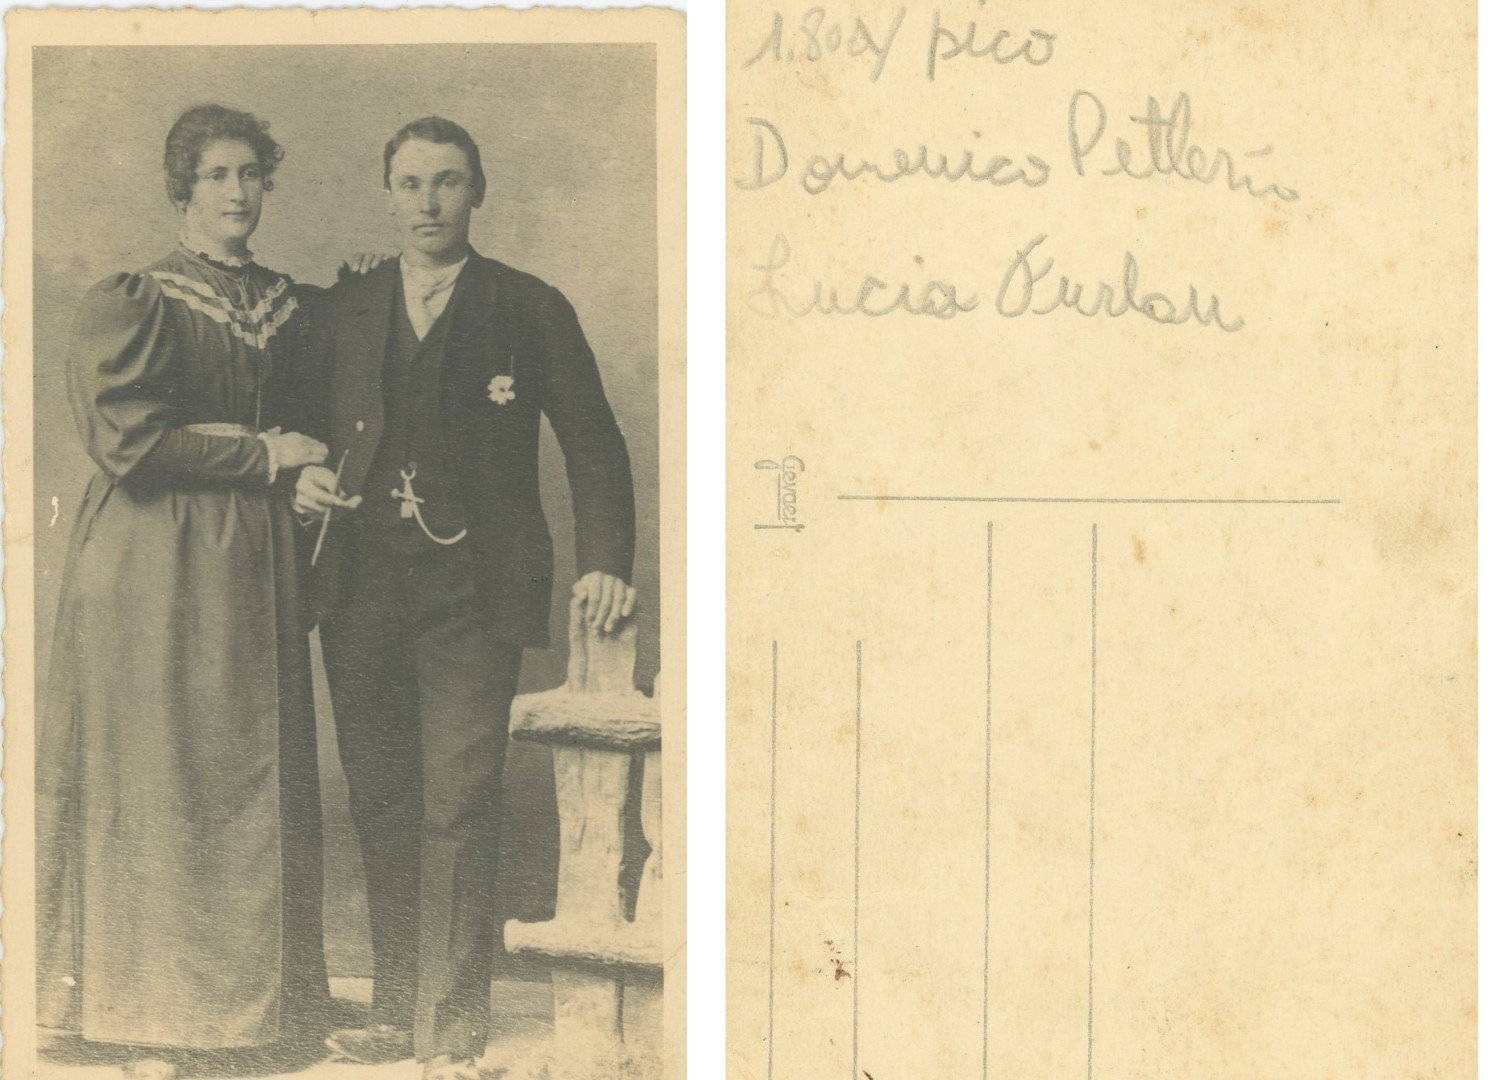 1.80 y pico
Domenico Pettarin
Lucia Furlan
Gevaert